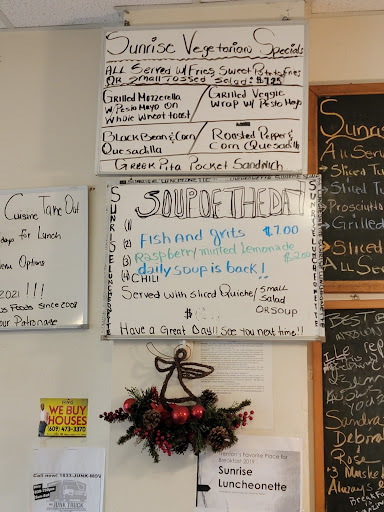 Sunrise Vegetarian Specials
ALL Served w/ Fries, Sweet Potato Fries
OR Small Tossed Salad: $7.25
Grilled Mozzerella
w/ Pesto Mayo on
Whole Wheat toast
Grilled Veggie
Wrap w/ Pesto Mayo
Black Bean & Corn
Quesadilla
Roasted Pepper &
Corn Quesadilla
Greek Pita Pocket Sandwich
SUNRISE LUNCHEONETTE
SOUP OF THE DAY
(1)
(2) Fish And grits $7.00
(3) Raspberry/mixed Lemonade $2.00
(4) daily soup is back!
CHILI
Served with sliced Quiche/ small
salad
OR SOUP
$
Have a Great Day!! See you next time!!
SUNRISE LUNCHEONETTE
SUNRISE LUNCHEONETTE
Cuisine Take Out
days for Lunch
Menu Options
2021 !!!
Foods Since 2007
our Patronage
Sunr
All Serve
Sliced Tu
Sliced T
Prosciutto
Grilled
Sliced
ALL Se
BEST O
Sandra
Debra
Ro
Always
WE BUY
HOUSES
609-473-3375
Call now! 1833-JUNK-MDV
JUNK TRUCK
Favorite Place for
Breakfast 2019
Sunrise
Luncheonette